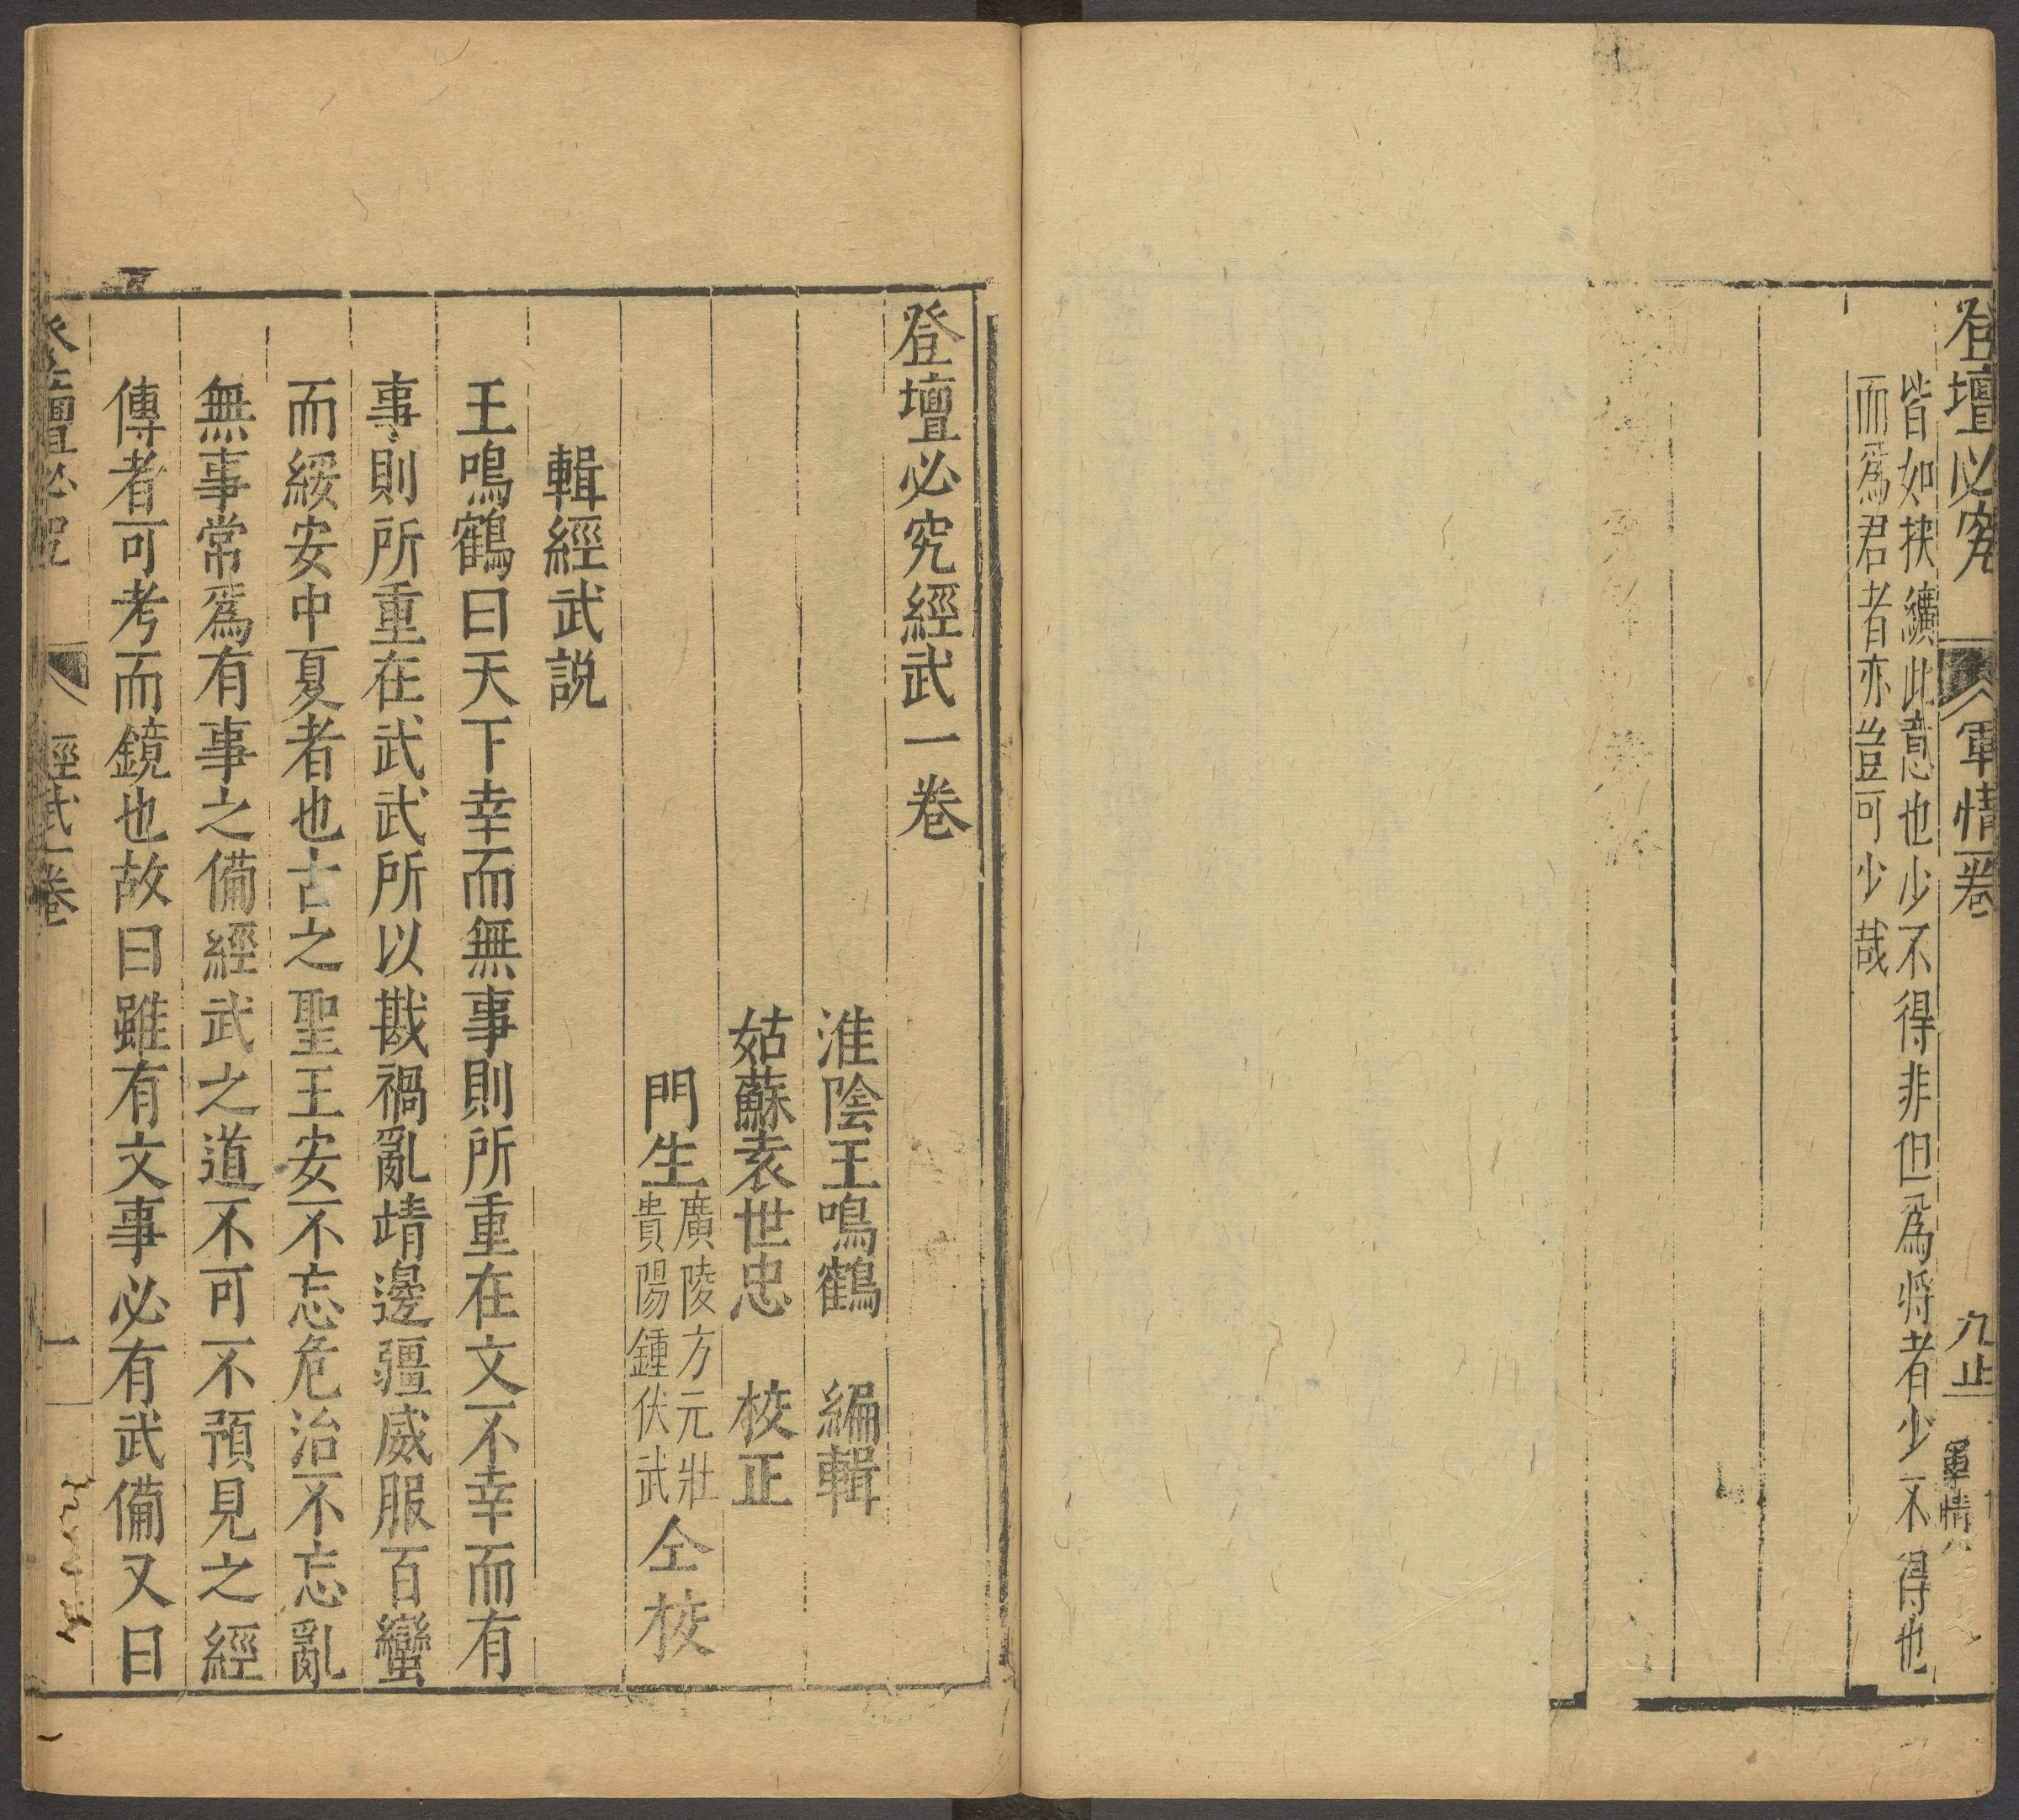 登壇必究 軍情一卷 九止 軍情
皆如挾纊此意也少不得非但爲將者少不得也
而爲君者亦豈可少哉
登壇必究經武一卷
淮陰王鳴鶴 編輯
姑蘇袁世忠 校正
門生廣陵方元壯貴陽鍾伏武仝校
輯經武説
王鳴鶴曰天下幸而無事則所重在文不幸而有
事則所重在武武所以戡禍亂靖邊疆威服百蠻
而綏安中夏者也古之聖王安不忘危治不忘亂
無事常爲有事之備經武之道不可不預見之經
傳者可考而鏡也故曰雖有文事必有武備又曰
登壇必究 經武一卷 一